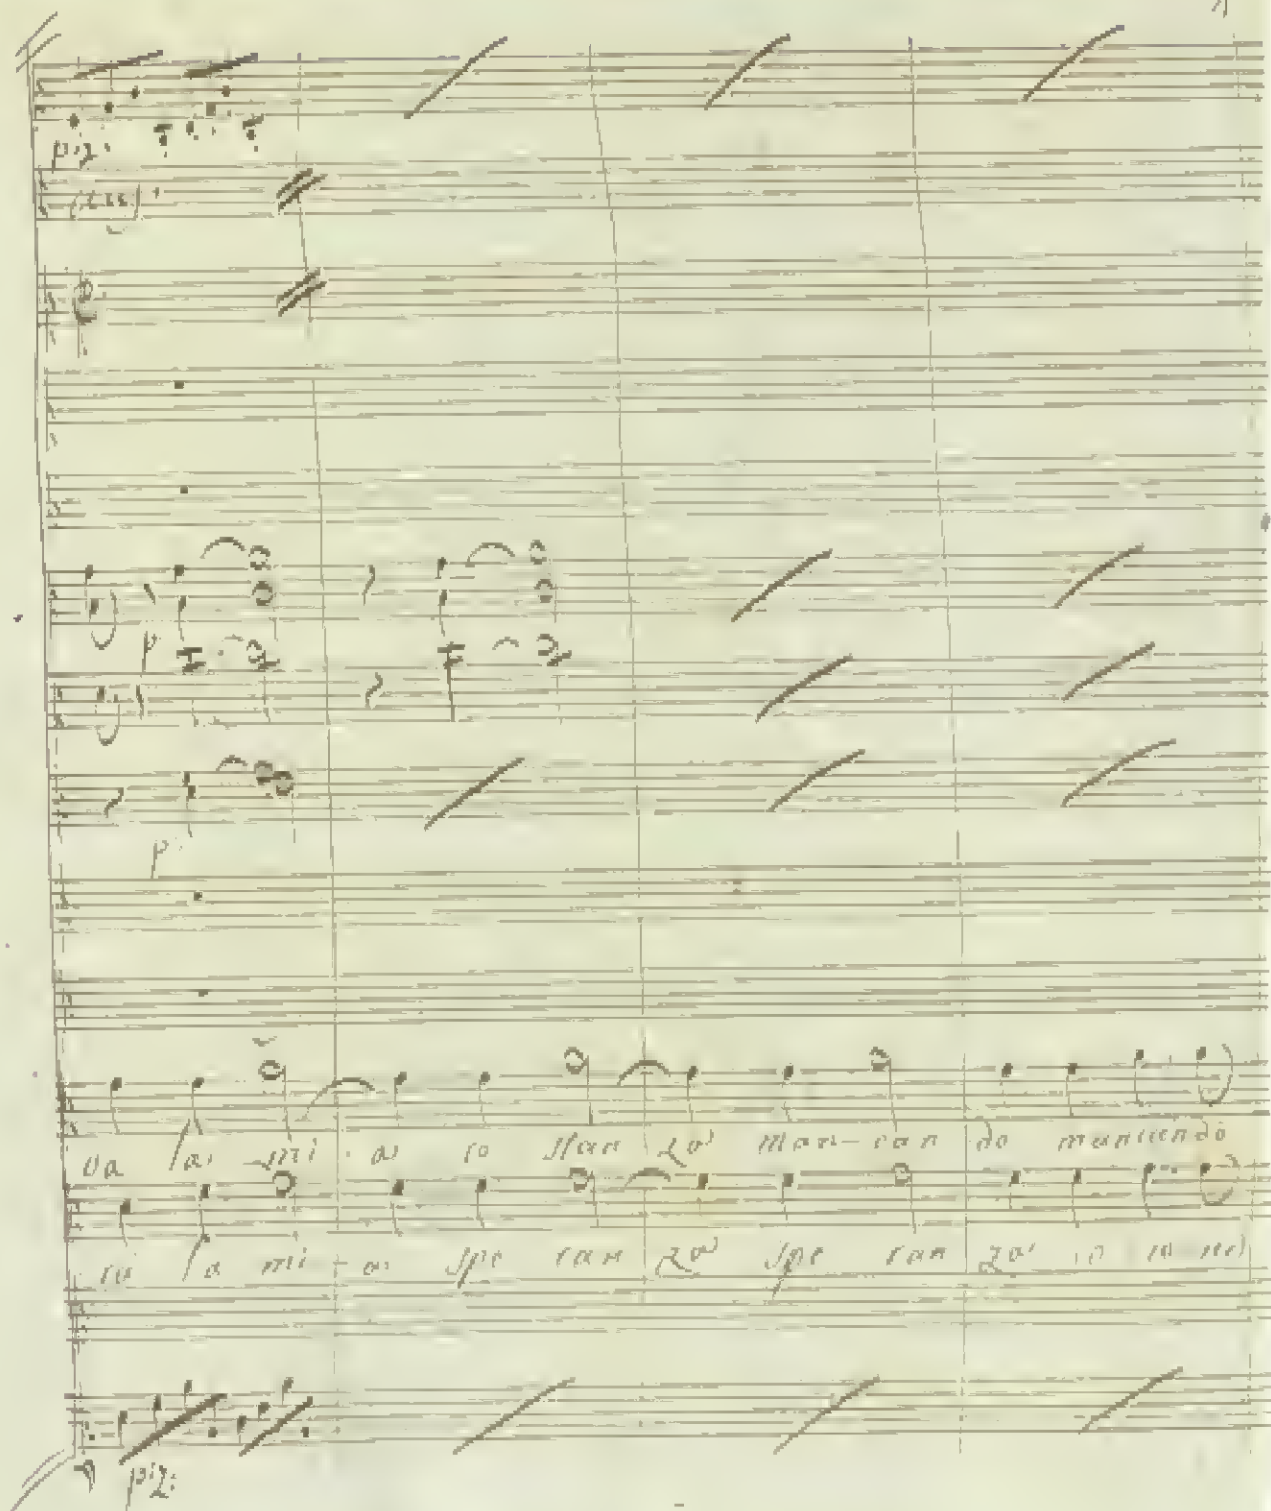 piz:
p
p
va la mi a co stan za man- can do mancando
ro la mi - a spe ran za spe ran za io
piz: